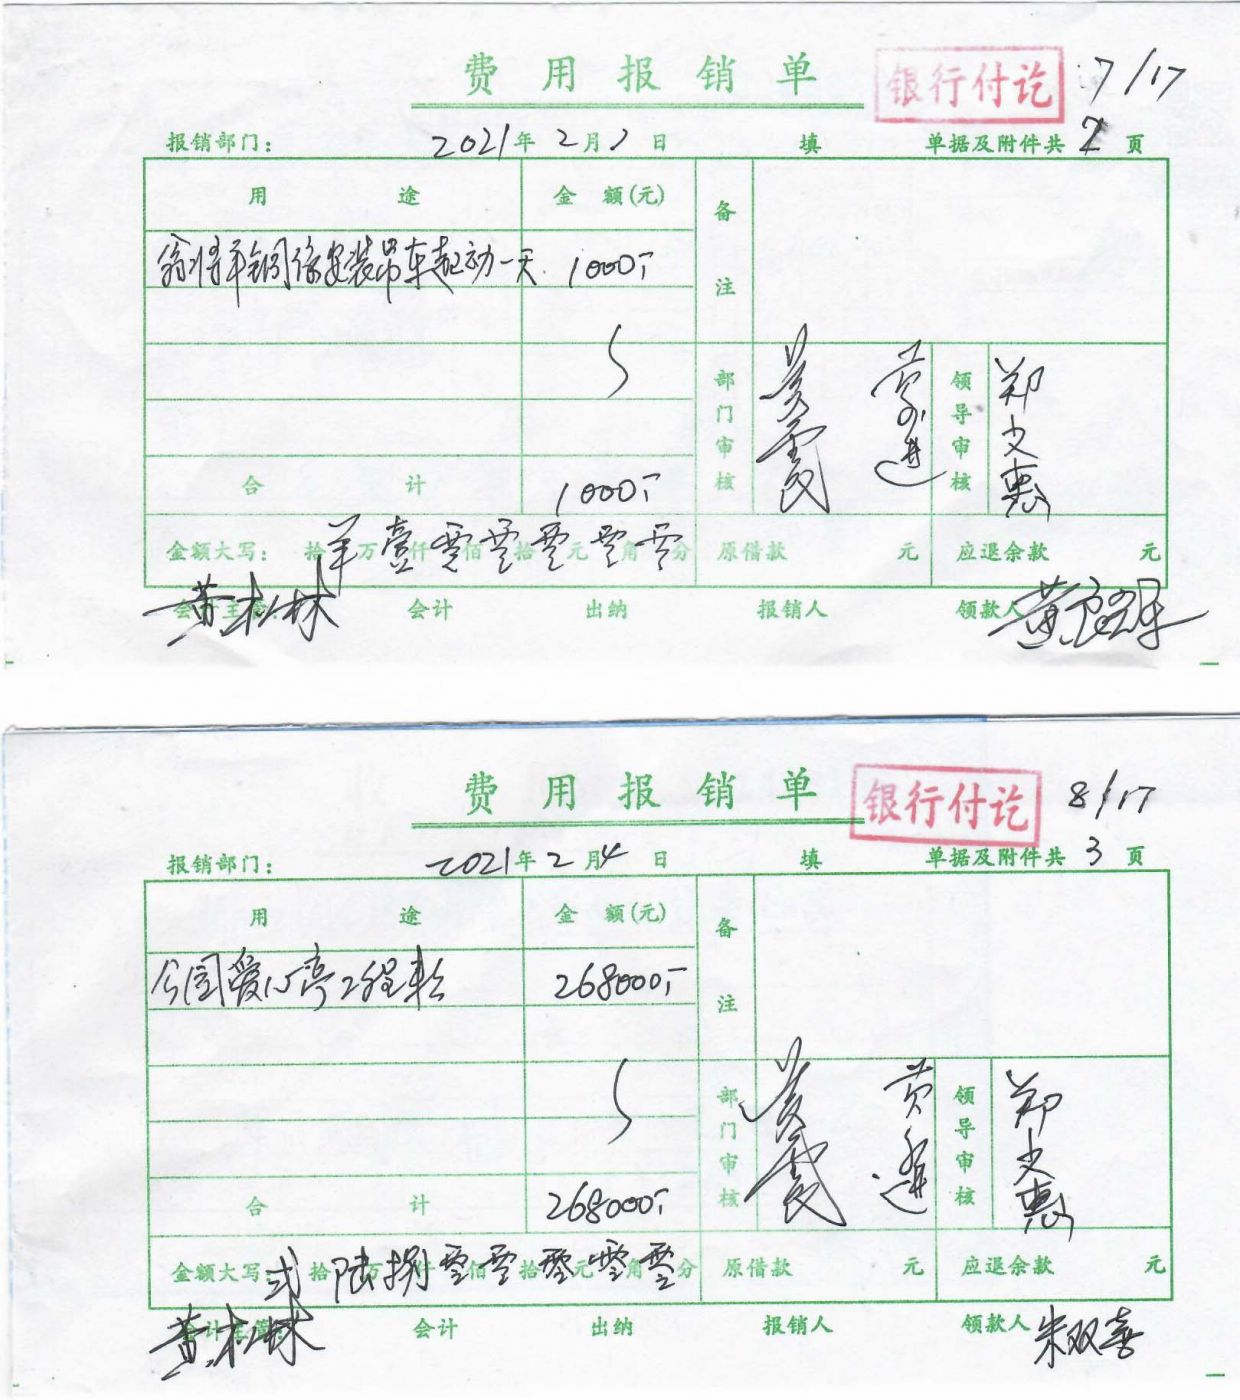 费用报销单 银行付讫 7/17
报销部门: 2021年2月2日 填 单据及附件共2页
用途 金额(元) 备注
铜像安装吊车起动一天 1000,-
部门审核 领导审核 郑文惠
合计 1000,-
金额大写: 拾羊万壹仟零佰零拾零元零角零分 原借款 元 应退余款 元
会计主管: 黄松林 会计 出纳 报销人 领款人
费用报销单 银行付讫 8/17
报销部门: 2021年2月4日 填 单据及附件共3页
用途 金额(元) 备注
公园爱心亭工程款 268000,-
部门审核 领导审核 郑文惠
合计 268000,-
金额大写: 弍拾陆万捌仟零佰零拾零元零角零分 原借款 元 应退余款 元
会计主管: 黄松林 会计 出纳 报销人 领款人 朱双喜